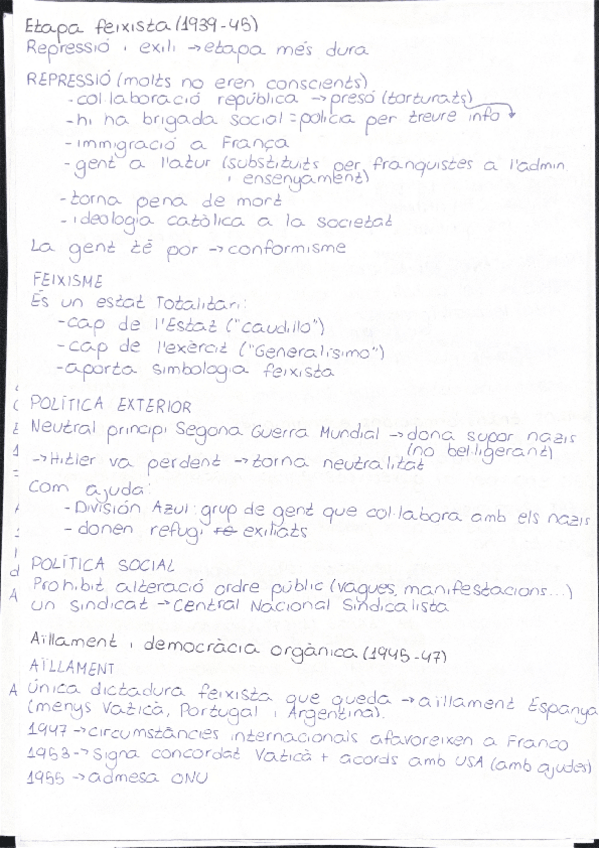 Etapa feixista (1939-45)
Repressió i exili → etapa més dura
REPRESSIÓ (molts no eren conscients)
- col·laboració república → presó (torturats)
- hi ha brigada social = policia per treure info
- immigració a França
- gent a l'atur (substituïts per franquistes a l'admin.
i ensenyament)
- torna pena de mort
- ideologia catòlica a la societat
La gent té por → conformisme
FEIXISME
És un estat Totalitari:
- cap de l'Estat ("caudillo")
- cap de l'exèrcit ("Generalísimo")
- aporta simbologia feixista
POLÍTICA EXTERIOR
Neutral principi Segona Guerra Mundial → dona supor nazis
(no bel·ligerant)
→ Hitler va perdent → torna neutralitat
Com ajuda:
- División Azul: grup de gent que col·labora amb els nazis
- donen refugi exiliats
POLÍTICA SOCIAL
Prohibit alteració ordre públic (vagues, manifestacions...)
un sindicat → Central Nacional Sindicalista
Aïllament i democràcia orgànica (1945-47)
AÏLLAMENT
Única dictadura feixista que queda → aïllament Espanya
(menys Vaticà, Portugal i Argentina).
1947 → circumstàncies internacionals afavoreixen a Franco
1953 → Signa concordat Vaticà + acords amb USA (amb ajudes)
1955 → admesa ONU